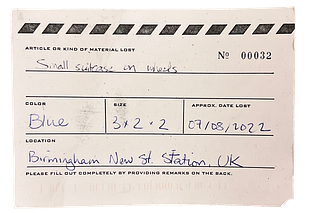 ARTICLE OR KIND OF MATERIAL LOST
Nº 00032
Small suitcase on wheels
COLOR SIZE APPROX. DATE LOST
Blue 3 x 2 x 2 07/08/2022
LOCATION
Birmingham New St. Station, UK
PLEASE FILL OUT COMPLETELY BY PROVIDING REMARKS ON THE BACK.